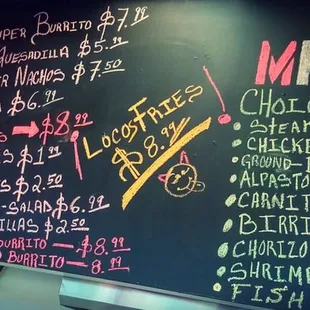 UPER BURRITO $7.99
QUESADILLA $5.99
ER NACHOS $7.50
$6.99
$8.99
$1.99
$2.50
-SALAD $6.99
ILLAS $2.50
BURRITO — $8.99
BURRITO — 8.99
! LOCOS FRIES !
$8.99
ME
CHOIC
• STEAK
• CHICKE
• GROUND-B
• ALPASTO
• CARNIT
• BIRRI
• CHORIZO
• SHRIMP
• FISH